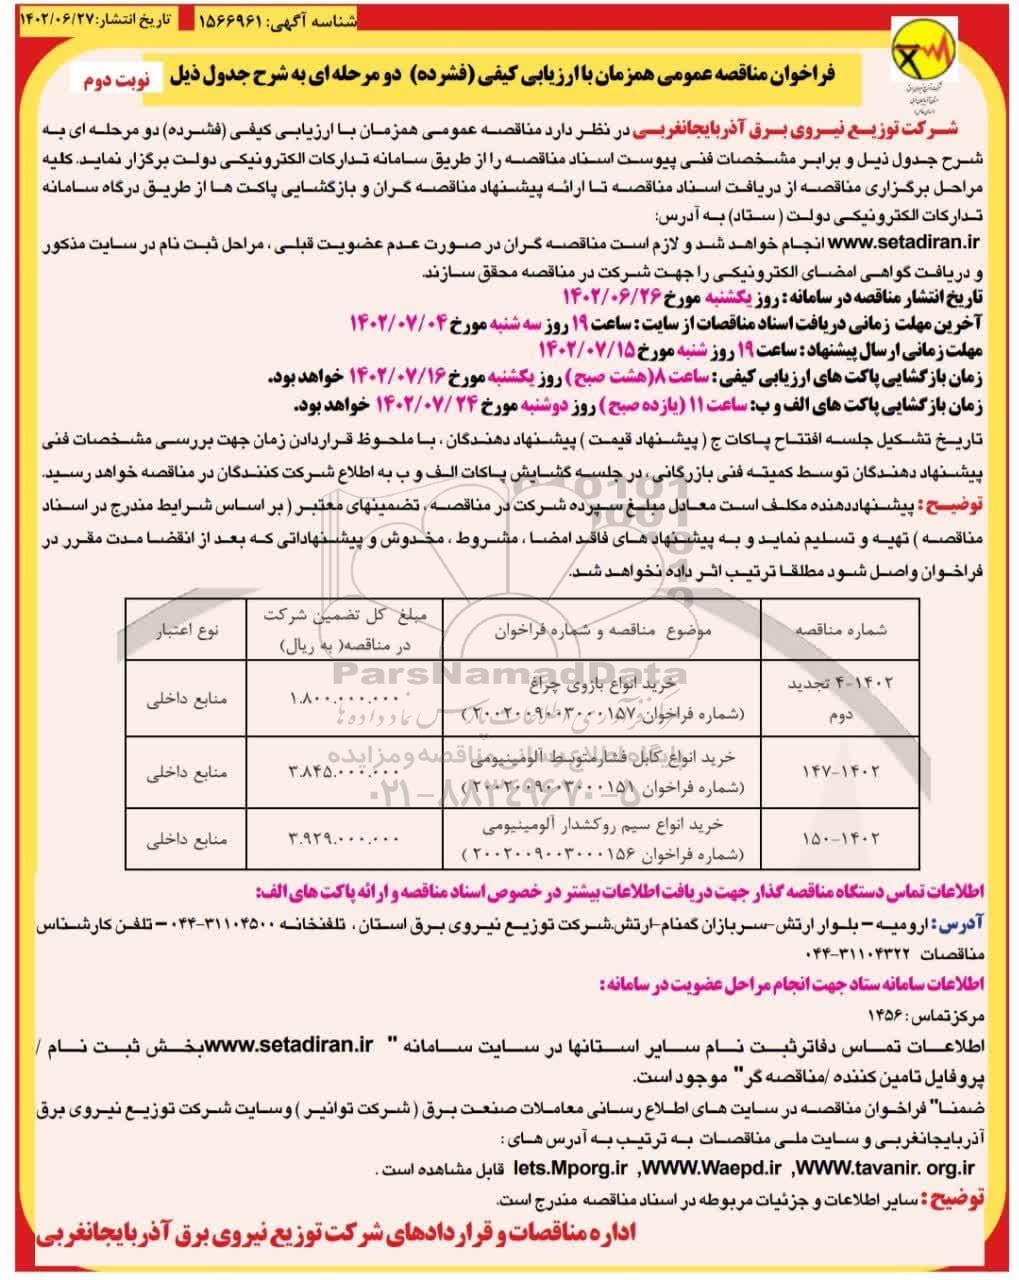 شناسه آگهی: ۱۵۶۶۹۶۱
تاریخ انتشار: ۱۴۰۲/۰۶/۲۷
فراخوان مناقصه عمومی همزمان با ارزیابی کیفی (فشرده) دو مرحله ای به شرح جدول ذیل
نوبت دوم
شرکت توزیع نیروی برق آذربایجانغربی در نظر دارد مناقصه عمومی همزمان با ارزیابی کیفی (فشرده) دو مرحله ای به
شرح جدول ذیل و برابر مشخصات فنی پیوست اسناد مناقصه را از طریق سامانه تدارکات الکترونیکی دولت برگزار نماید. کلیه
مراحل برگزاری مناقصه از دریافت اسناد مناقصه تا ارائه پیشنهاد مناقصه گران و بازگشایی پاکت ها از طریق درگاه سامانه
تدارکات الکترونیکی دولت ( ستاد) به آدرس:
www.setadiran.ir انجام خواهد شد و لازم است مناقصه گران در صورت عدم عضویت قبلی ، مراحل ثبت نام در سایت مذکور
و دریافت گواهی امضای الکترونیکی را جهت شرکت در مناقصه محقق سازند.
تاریخ انتشار مناقصه در سامانه : روز یکشنبه مورخ ۱۴۰۲/۰۶/۲۶
آخرین مهلت زمانی دریافت اسناد مناقصات از سایت : ساعت ۱۹ روز سه شنبه مورخ ۱۴۰۲/۰۷/۰۴
مهلت زمانی ارسال پیشنهاد : ساعت ۱۹ روز شنبه مورخ ۱۴۰۲/۰۷/۱۵
زمان بازگشایی پاکت های ارزیابی کیفی : ساعت ۸(هشت صبح) روز یکشنبه مورخ ۱۴۰۲/۰۷/۱۶ خواهد بود.
زمان بازگشایی پاکت های الف و ب: ساعت ۱۱ (یازده صبح ) روز دوشنبه مورخ ۱۴۰۲/۰۷/ ۲۴ خواهد بود.
تاریخ تشکیل جلسه افتتاح پاکات ج ( پیشنهاد قیمت ) پیشنهاد دهندگان ، با ملحوظ قراردادن زمان جهت بررسی مشخصات فنی
پیشنهاد دهندگان توسط کمیته فنی بازرگانی ، در جلسه گشایش پاکات الف و ب به اطلاع شرکت کنندگان در مناقصه خواهد رسید.
توضیح : پیشنهاددهنده مکلف است معادل مبلغ سپرده شرکت در مناقصه ، تضمینهای معتبر ( بر اساس شرایط مندرج در اسناد
مناقصه ) تهیه و تسلیم نماید و به پیشنهاد های فاقد امضا ، مشروط ، مخدوش و پیشنهاداتی که بعد از انقضا مدت مقرر در
فراخوان واصل شود مطلقا ترتیب اثر داده نخواهد شد.
شماره مناقصه
موضوع مناقصه و شماره فراخوان
مبلغ کل تضمین شرکت در مناقصه( به ریال)
نوع اعتبار
۴-۱۴۰۲ تجدید دوم
خرید انواع بازوی چراغ
(شماره فراخوان ۲۰۰۲۰۰۹۰۰۳۰۰۰۱۵۷ )
۱.۸۰۰.۰۰۰.۰۰۰
منابع داخلی
۱۴۷-۱۴۰۲
خرید انواع کابل فشارمتوسط آلومینیومی
(شماره فراخوان ۲۰۰۲۰۰۹۰۰۳۰۰۰۱۵۱ )
۳.۸۴۵.۰۰۰.۰۰۰
منابع داخلی
۱۵۰-۱۴۰۲
خرید انواع سیم روکشدار آلومینیومی
(شماره فراخوان ۲۰۰۲۰۰۹۰۰۳۰۰۰۱۵۶ )
۳.۹۲۹.۰۰۰.۰۰۰
منابع داخلی
ParsNamadData
پایگاه اطلاع رسانی مناقصه و مزایده
۰۲۱-۸۸۳۴۹۶۷۰-۵
اطلاعات تماس دستگاه مناقصه گذار جهت دریافت اطلاعات بیشتر در خصوص اسناد مناقصه و ارائه پاکت های الف:
آدرس : ارومیه – بلوار ارتش-سربازان گمنام-ارتش.شرکت توزیع نیروی برق استان ، تلفنخانه ۳۱۱۰۴۵۰۰-۰۴۴ – تلفن کارشناس
مناقصات ۳۱۱۰۴۳۲۲-۰۴۴
اطلاعات سامانه ستاد جهت انجام مراحل عضویت در سامانه :
مرکز تماس : ۱۴۵۶
اطلاعات تماس دفاتر ثبت نام سایر استانها در سایت سامانه " www.setadiran.ir بخش ثبت نام /
پروفایل تامین کننده /مناقصه گر" موجود است.
ضمنا" فراخوان مناقصه در سایت های اطلاع رسانی معاملات صنعت برق ( شرکت توانیر ) وسایت شرکت توزیع نیروی برق
آذربایجانغربی و سایت ملی مناقصات به ترتیب به آدرس های :
Iets.Mporg.ir ,WWW.Waepd.ir ,WWW.tavanir. org.ir قابل مشاهده است .
توضیح : سایر اطلاعات و جزئیات مربوطه در اسناد مناقصه مندرج است.
اداره مناقصات و قراردادهای شرکت توزیع نیروی برق آذربایجانغربی